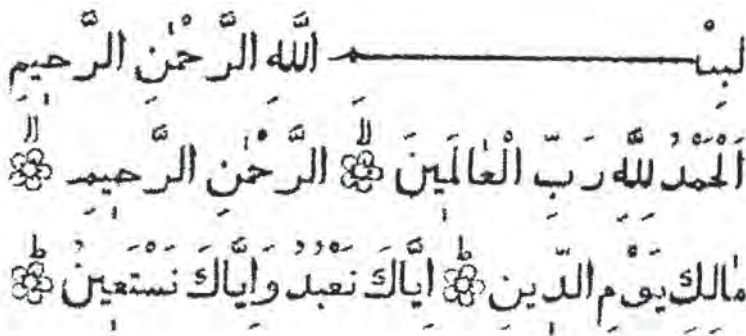 بِسْمِ اللَّهِ الرَّحْمٰنِ الرَّحِيمِ
اَلْحَمْدُ لِلَّهِ رَبِّ الْعٰالَمِينَ ۝ الرَّحْمٰنِ الرَّحِيمِ ۝
مٰالِكِ يَوْمِ الدِّينِ ۝ اِيَّاكَ نَعْبُدُ وَاِيَّاكَ نَسْتَعِينُ ۝